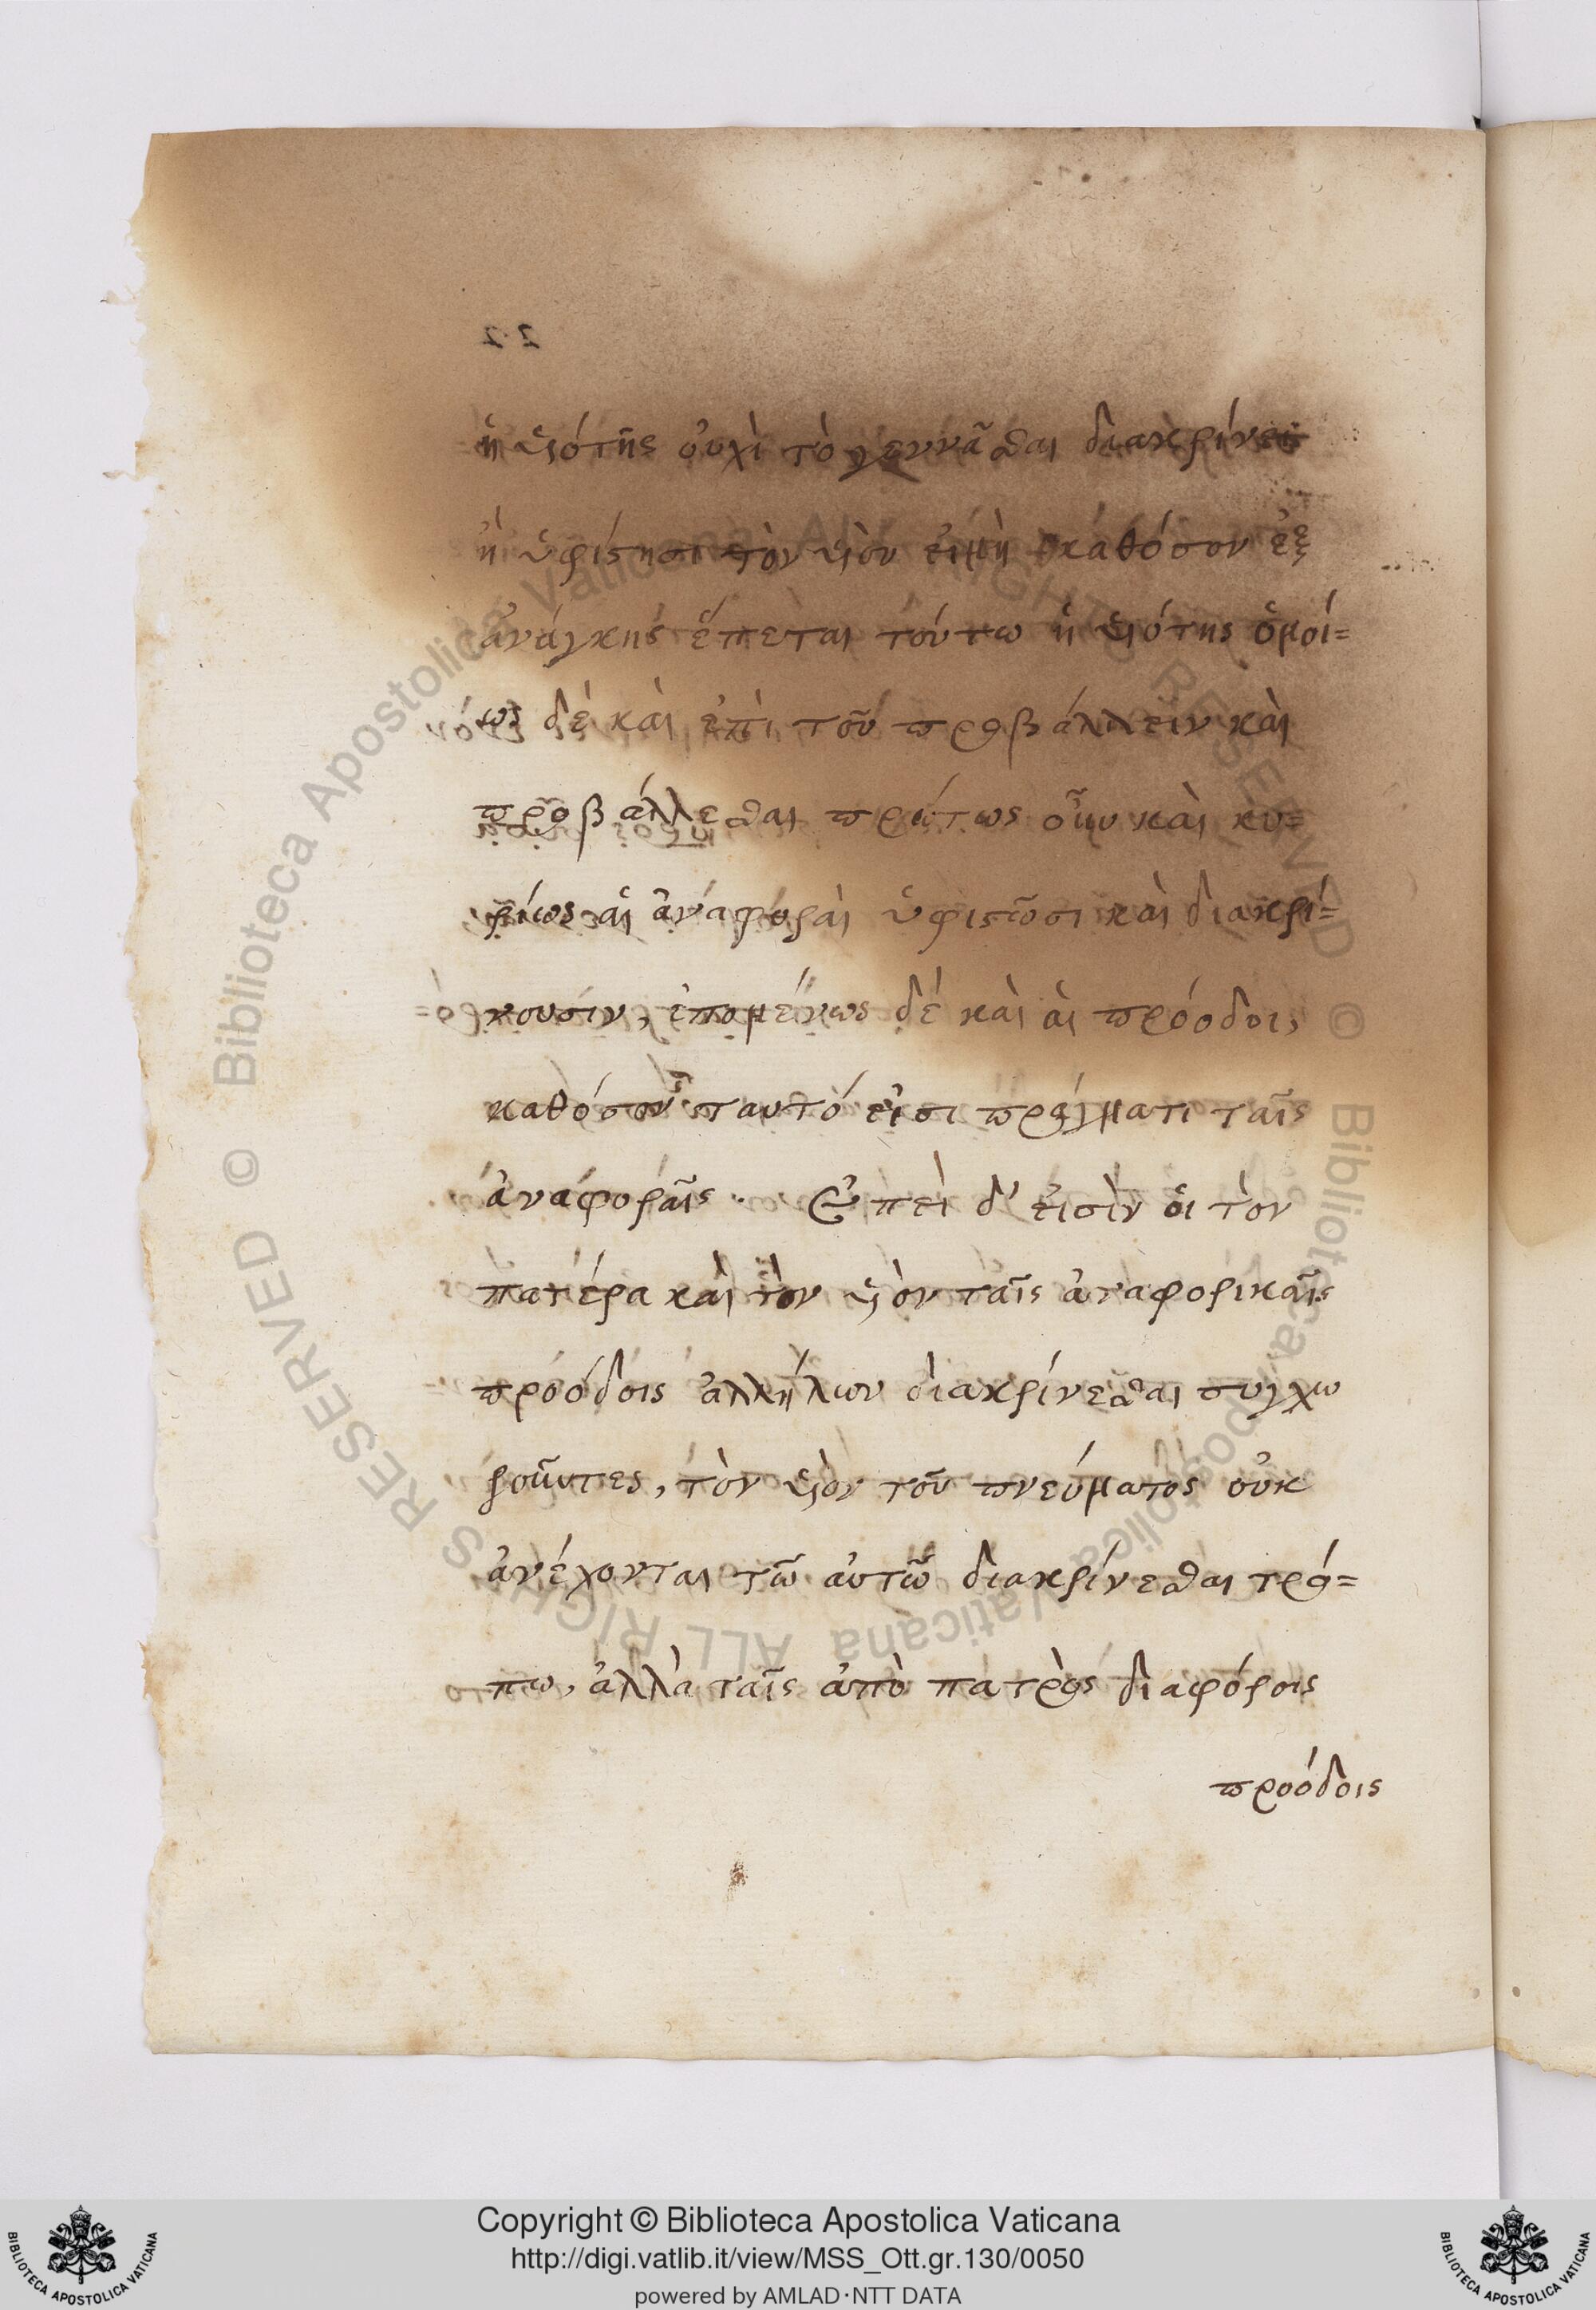 ἡ υἱότης οὐχὶ τὸ γεννᾶσθαι διακρίνει
ἢ ὑφίστησι τὸν υἱὸν εἰμὴ καθόσον ἐξ
ἀνάγκης ἕπεται τούτω ἡ υἱότης ὁμοί=
ως δὲ καὶ ἐπὶ τοῦ προβάλλειν καὶ
προβάλλεσθαι πρώτως οὖν καὶ κυ=
ρίως αἱ ἀναφοραὶ ὑφιστῶσι καὶ διακρί=
νουσιν, ἑπομένως δὲ καὶ αἱ πρόοδοι,
καθόσον ταυτό εἰσι πράγματι ταῖς
ἀναφοραῖς. Ἐπεὶ δ' εἰσὶν οἱ τὸν
πατέρα καὶ τὸν υἱὸν ταῖς ἀναφορικαῖς
προόδοις ἀλλήλων διακρίνεσθαι συγχω
ροῦντες, τὸν υἱὸν τοῦ πνεύματος οὐκ
ἀνέχονται τῶ αὐτῶ διακρίνεσθαι τρό=
πω, ἀλλὰ ταῖς ἀπὸ πατρὸς διαφόροις
προόδοις
Copyright © Biblioteca Apostolica Vaticana
http://digi.vatlib.it/view/MSS_Ott.gr.130/0050
powered by AMLAD·NTT DATA